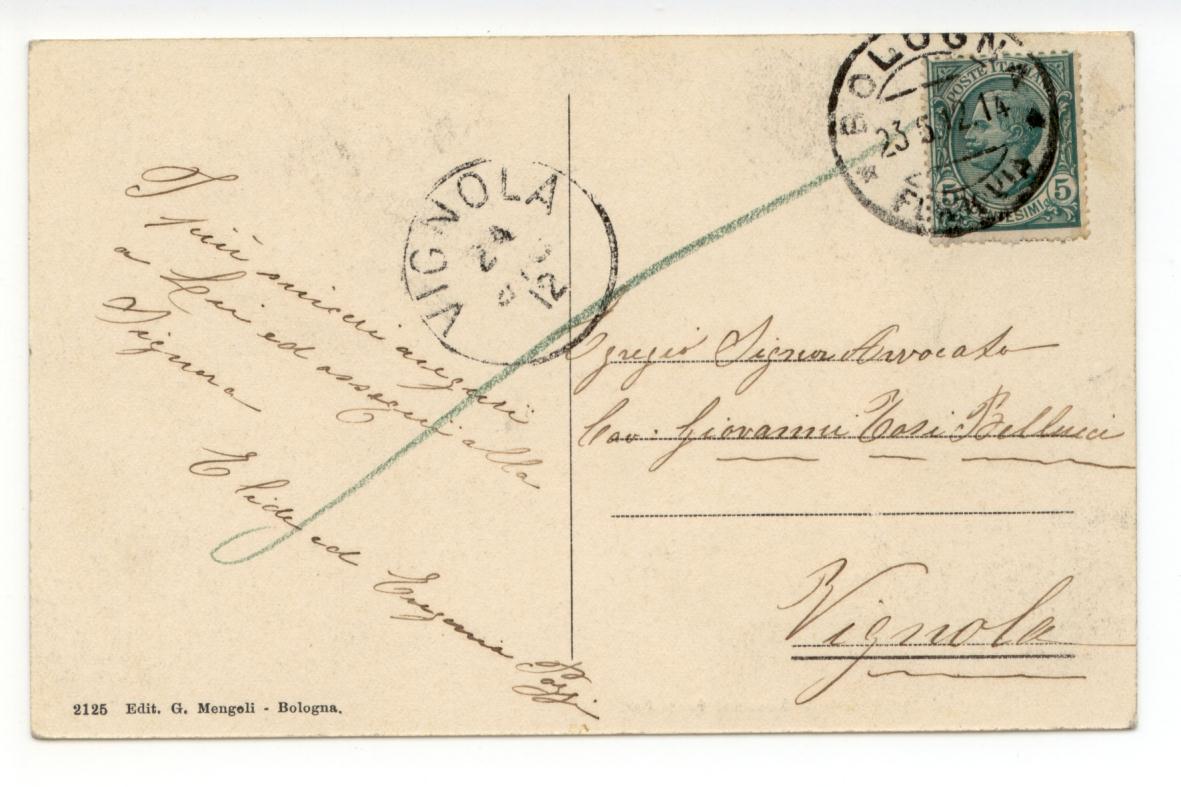 I più sinceri auguri
a Lui ed ossequi alla
Signora
Elide ed Eugenia Pozzi
VIGNOLA
24
12
BOLOGNA
23.5.12.14
FERROVIA
POSTE ITALIANE
5 5
CENTESIMI
Egregio Signor Avvocato
Cav: Giovanni Tosi Bellucci
Vignola
2125 Edit. G. Mengoli - Bologna.